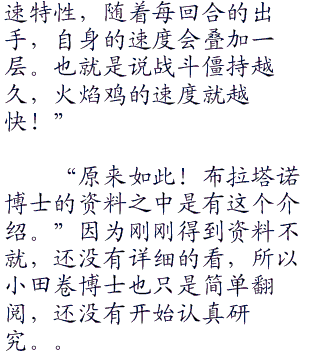 速特性，随着每回合的出
手，自身的速度会叠加一
层。也就是说战斗僵持越
久，火焰鸡的速度就越
快！”
“原来如此！布拉塔诺
博士的资料之中是有这个介
绍。”因为刚刚得到资料不
就，还没有详细的看，所以
小田卷博士也只是简单翻
阅，还没有开始认真研
究。。